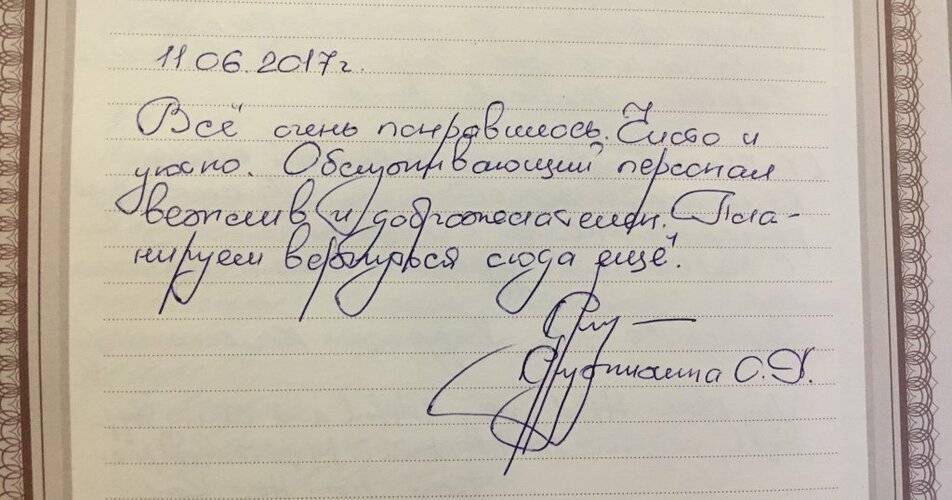 11.06.2017г.
Всё очень понравилось. Чисто и
уютно. Обслуживающий персонал
вежлив и доброжелателен. Пла-
нируем вернуться сюда ещё.
С.